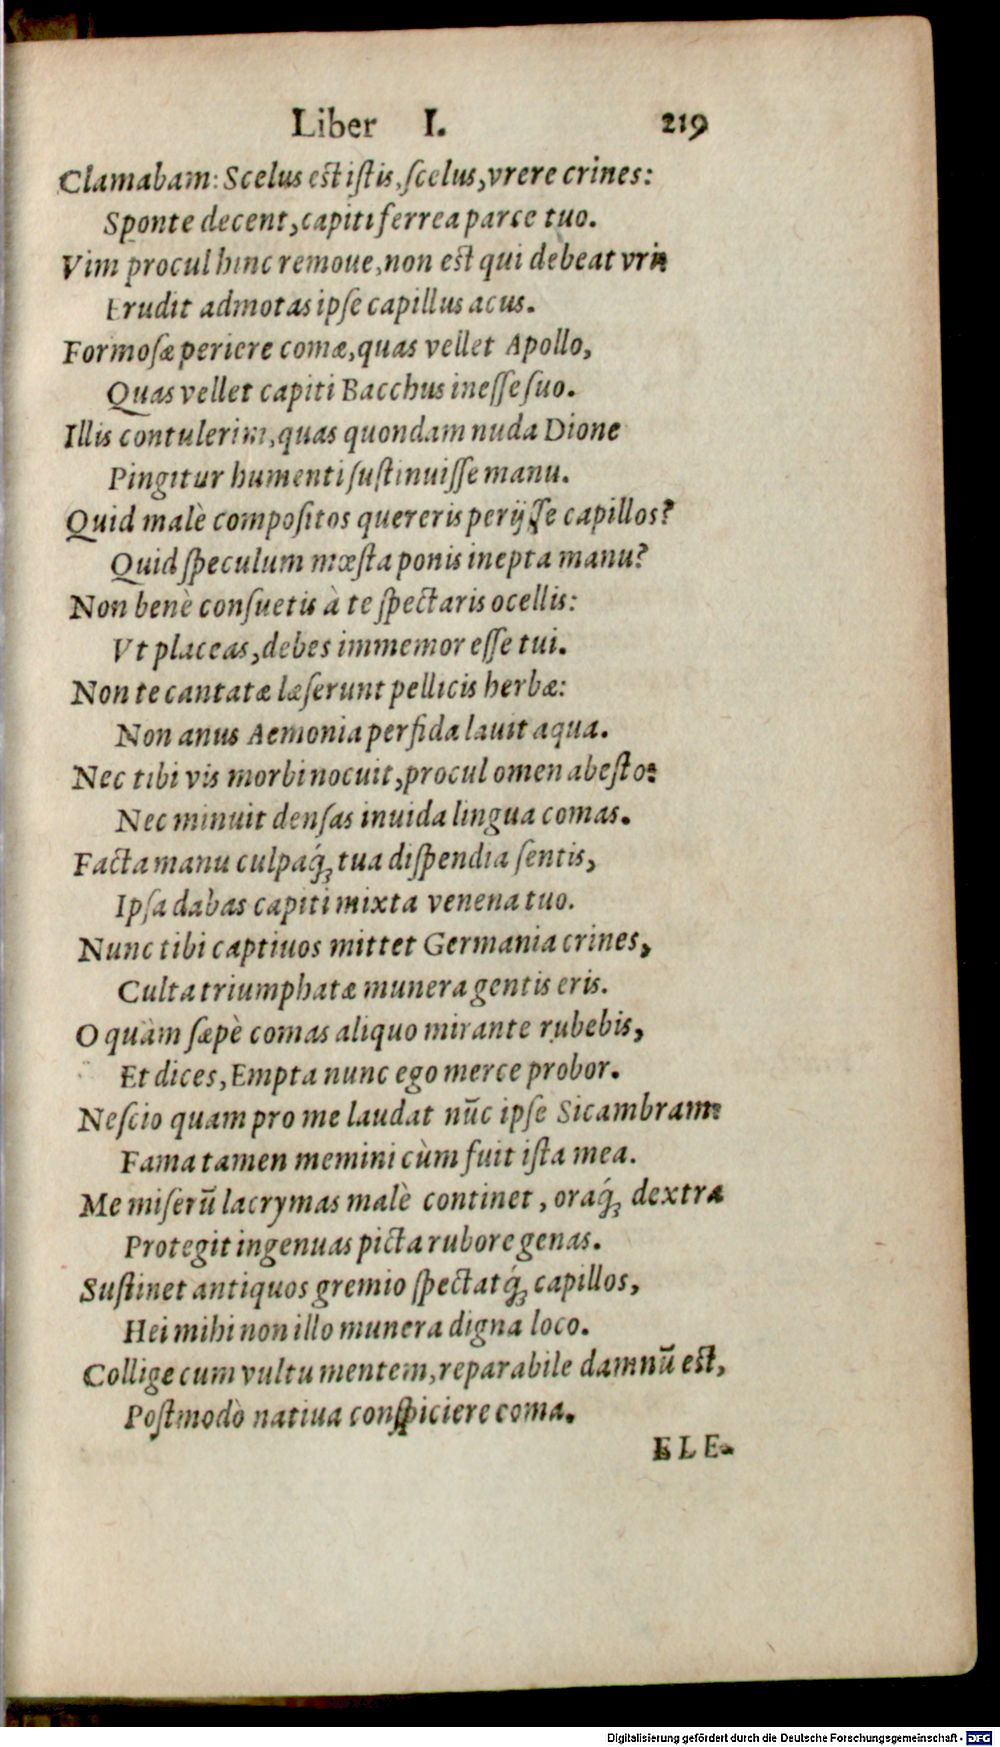 Liber I. 219
Clamabam: Scelus est istis, scelus, vrere crines:
Sponte decent, capiti ferrea parce tuo.
Vim procul hinc remoue, non est qui debeat vri:
Erudit admotas ipse capillus acus.
Formosæ periere comæ, quas vellet Apollo,
Quas vellet capiti Bacchus inesse suo.
Illis contulerim, quas quondam nuda Dione
Pingitur humenti sustinuisse manu.
Quid malè compositos quereris perijsse capillos?
Quid speculum mœsta ponis inepta manu?
Non benè consuetis à te spectaris ocellis:
Vt placeas, debes immemor esse tui.
Non te cantatæ læserunt pellicis herbæ:
Non anus Aemonia perfida lauit aqua.
Nec tibi vis morbi nocuit, procul omen abesto:
Nec minuit densas inuida lingua comas.
Facta manu culpaq́; tua dispendia sentis,
Ipsa dabas capiti mixta venena tuo.
Nunc tibi captiuos mittet Germania crines,
Culta triumphatæ munera gentis eris.
O quàm sæpè comas aliquo mirante rubebis,
Et dices, Empta nunc ego merce probor.
Nescio quam pro me laudat nūc ipse Sicambram:
Fama tamen memini cùm fuit ista mea.
Me miserū lacrymas malè continet, oraq́; dextra
Protegit ingenuas picta rubore genas.
Sustinet antiquos gremio spectatq́; capillos,
Hei mihi non illo munera digna loco.
Collige cum vultu mentem, reparabile damnū est,
Postmodò natiua conspiciere coma.
ELE-
Digitalisierung gefördert durch die Deutsche Forschungsgemeinschaft - DFG